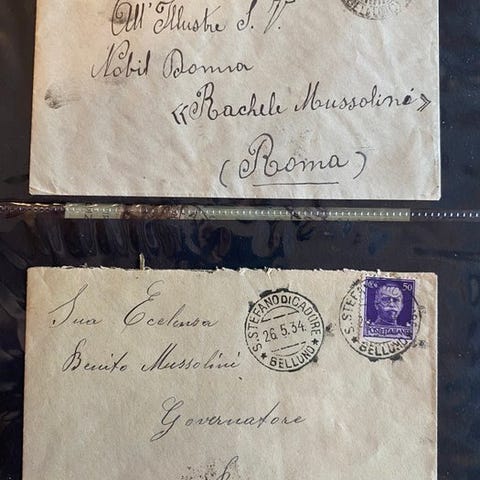 All' Illustre S. V.
Nobil Donna
« Rachele Mussolini »
(Roma)
Sua Eccelensa
Benito Mussolini
Governatore
S. STEFANO DI CADORE
26.5.34
BELLUNO
S. STEFANO
BELLUNO
50
POSTE ITALIANE